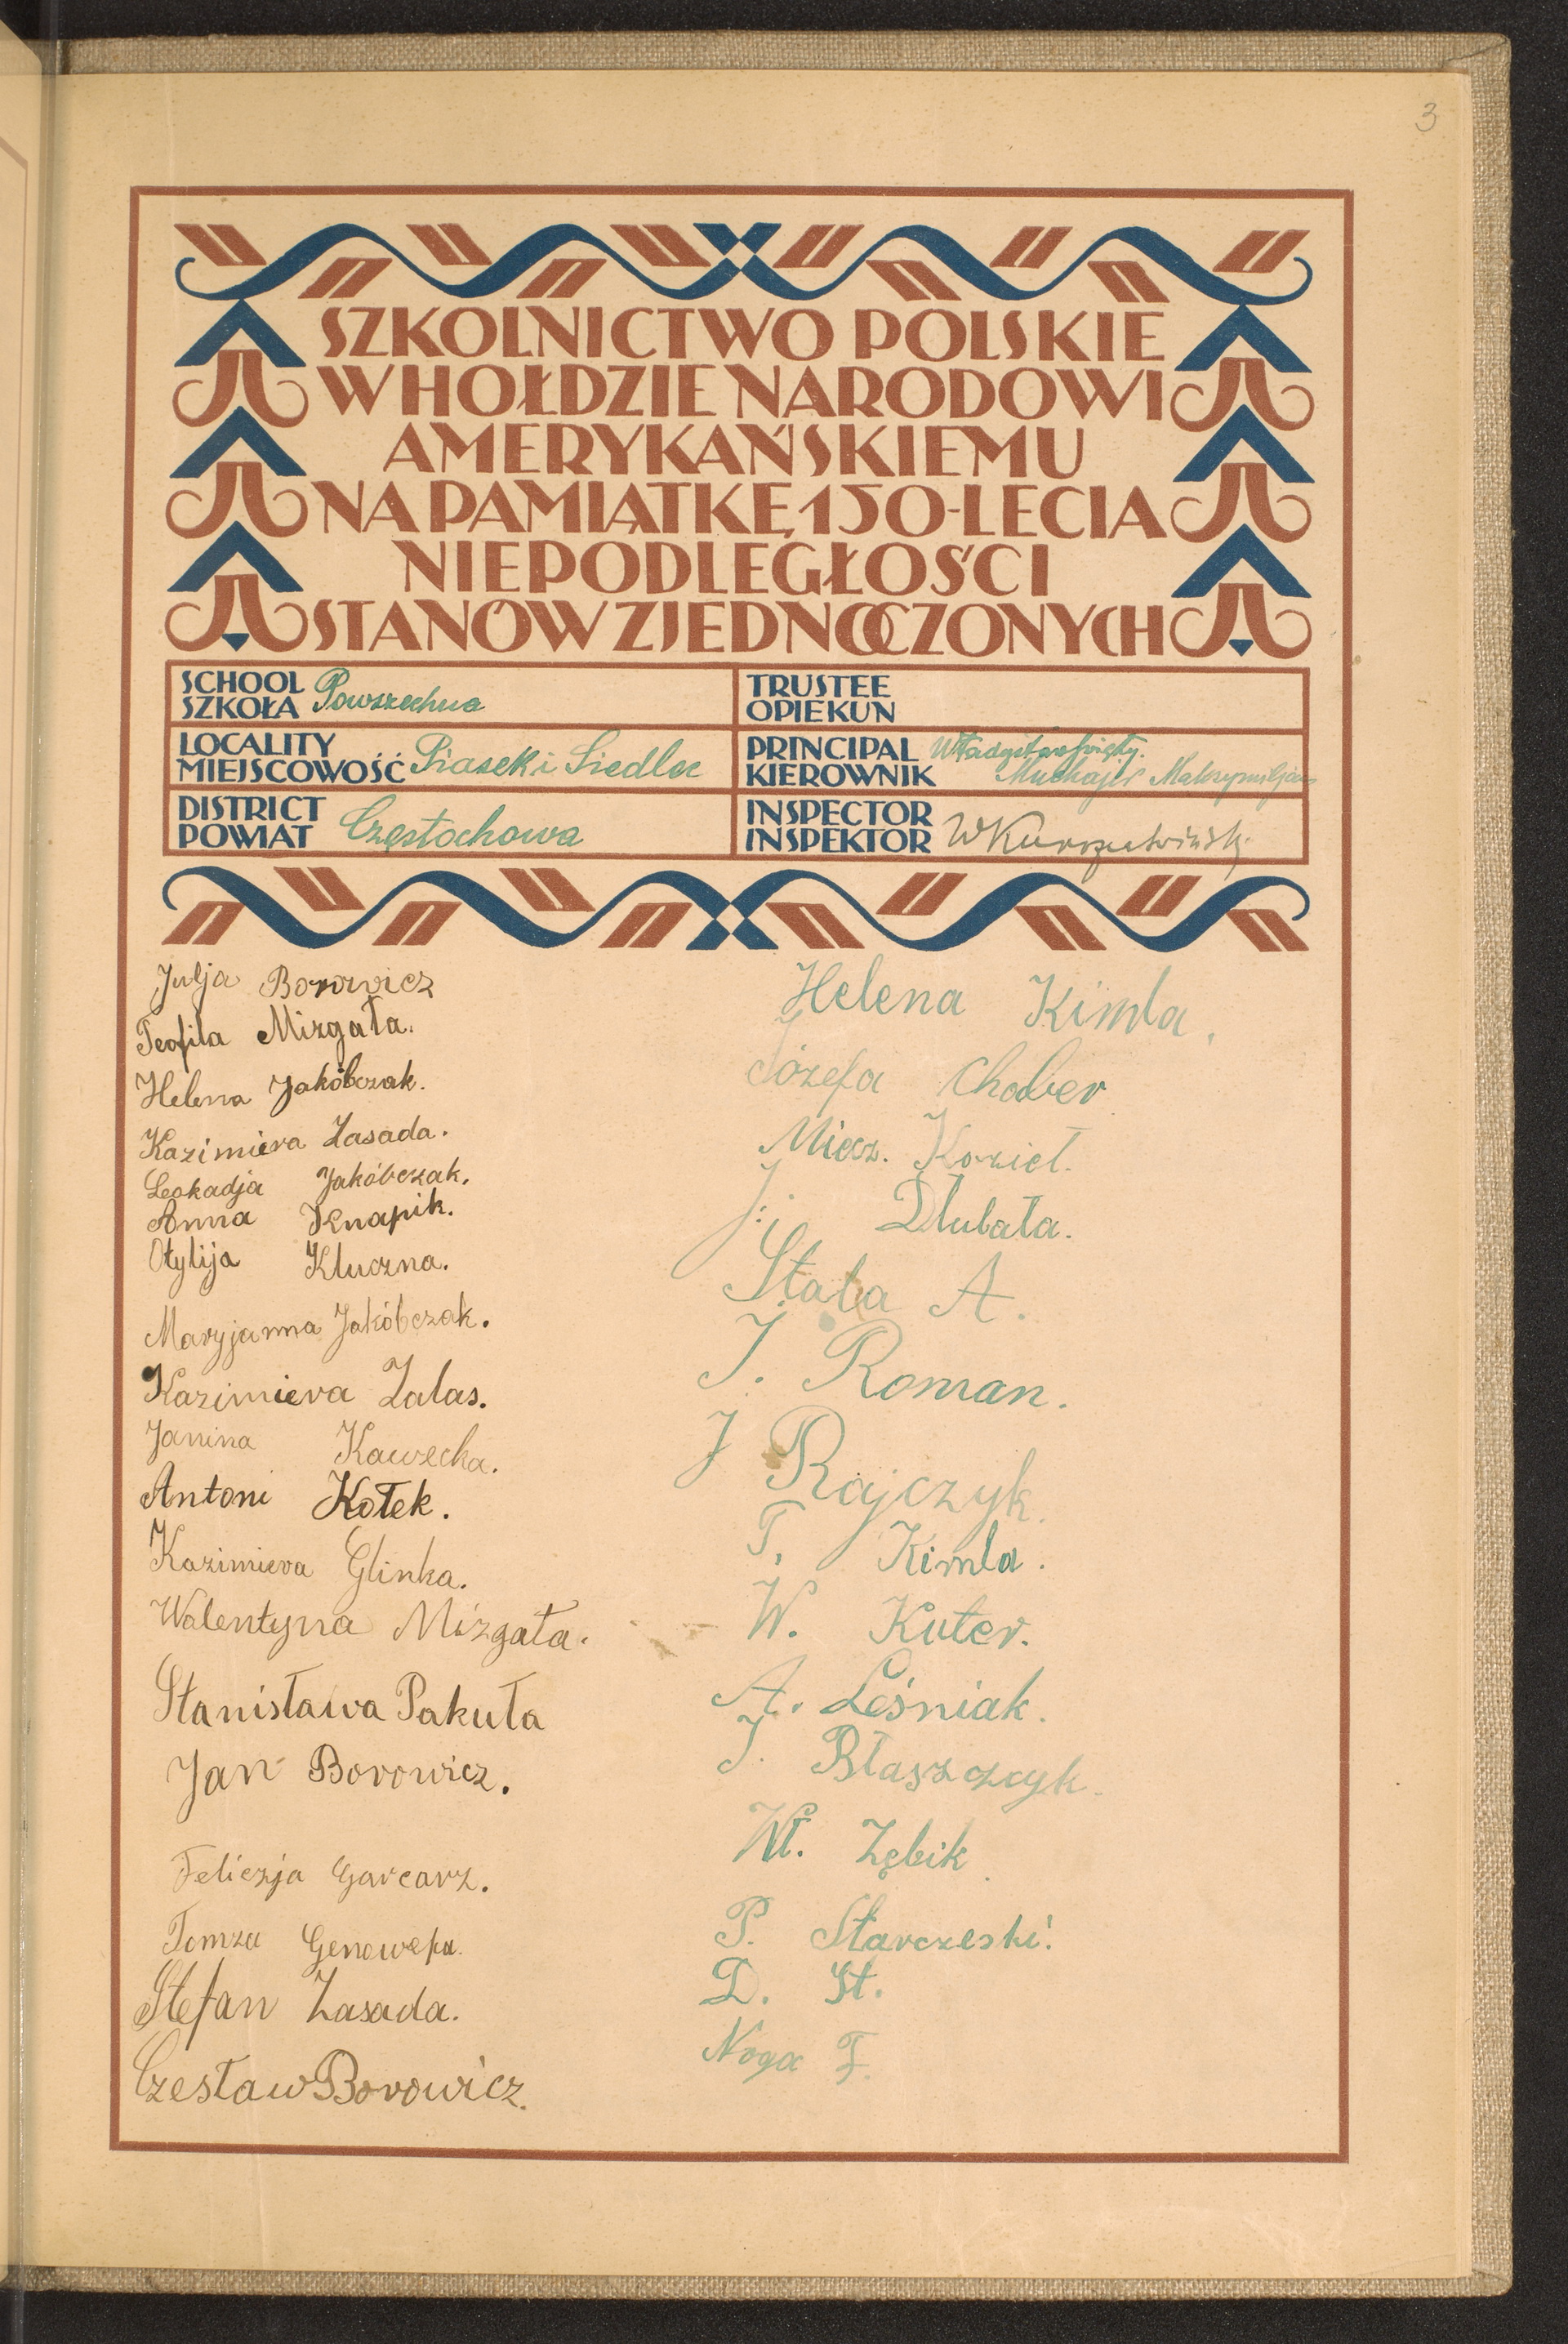 3
SZKOLNICTWO POLSKIE
W HOŁDZIE NARODOWI
AMERYKAŃSKIEMU
NA PAMIĄTKĘ 150-LECIA
NIEPODLEGŁOŚCI
STANÓW ZJEDNOCZONYCH
SCHOOL
SZKOŁA Powszechna
TRUSTEE
OPIEKUN
LOCALITY
MIEJSCOWOŚĆ Piasek i Siedlec
PRINCIPAL
KIEROWNIK
DISTRICT
POWIAT Częstochowa
INSPECTOR
INSPEKTOR
Julja Borowicz
Teofila Mizgała.
Helena Jakóbczak.
Kazimiera Zasada.
Leokadja Jakóbczak.
Anna Knapik.
Otylija Kluczna.
Maryjanna Jakóbczak.
Kazimiera Zalas.
Janina Kawecka.
Antoni Kołek.
Kazimiera Glinka.
Walentyna Mizgała.
Stanisława Pakuła
Jan Borowicz.
Feliczja Garcarz.
Tomza Genowefa.
Stefan Zasada.
Czesław Borowicz.
Helena Kimla.
Józefa Chober
Miecz. Kozieł.
J. Dłubała.
Stala A.
J. Roman.
J Rajczyk.
T. Kimla.
W. Kuter.
A. Leśniak.
J. Błaszczyk.
Wł. Zębik.
P. Starczeski.
D. St.
Noga F.